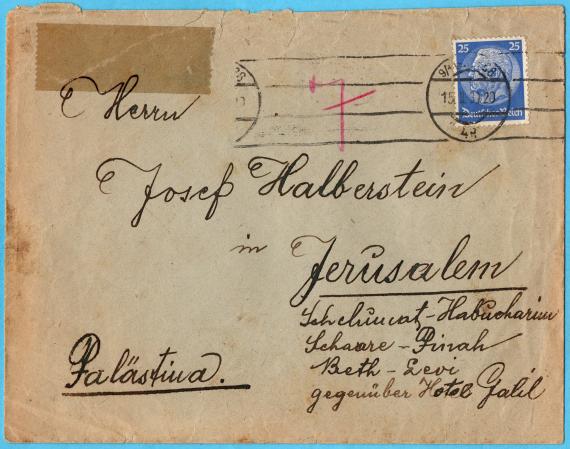 25 25
Deutsches Reich
15. 20
Herrn
Josef Halberstein
in
Jerusalem
Schchunat-Habucharim
Schaare-Pinah
Beth-Levi
gegenüber Hotel Galil
Palästina.